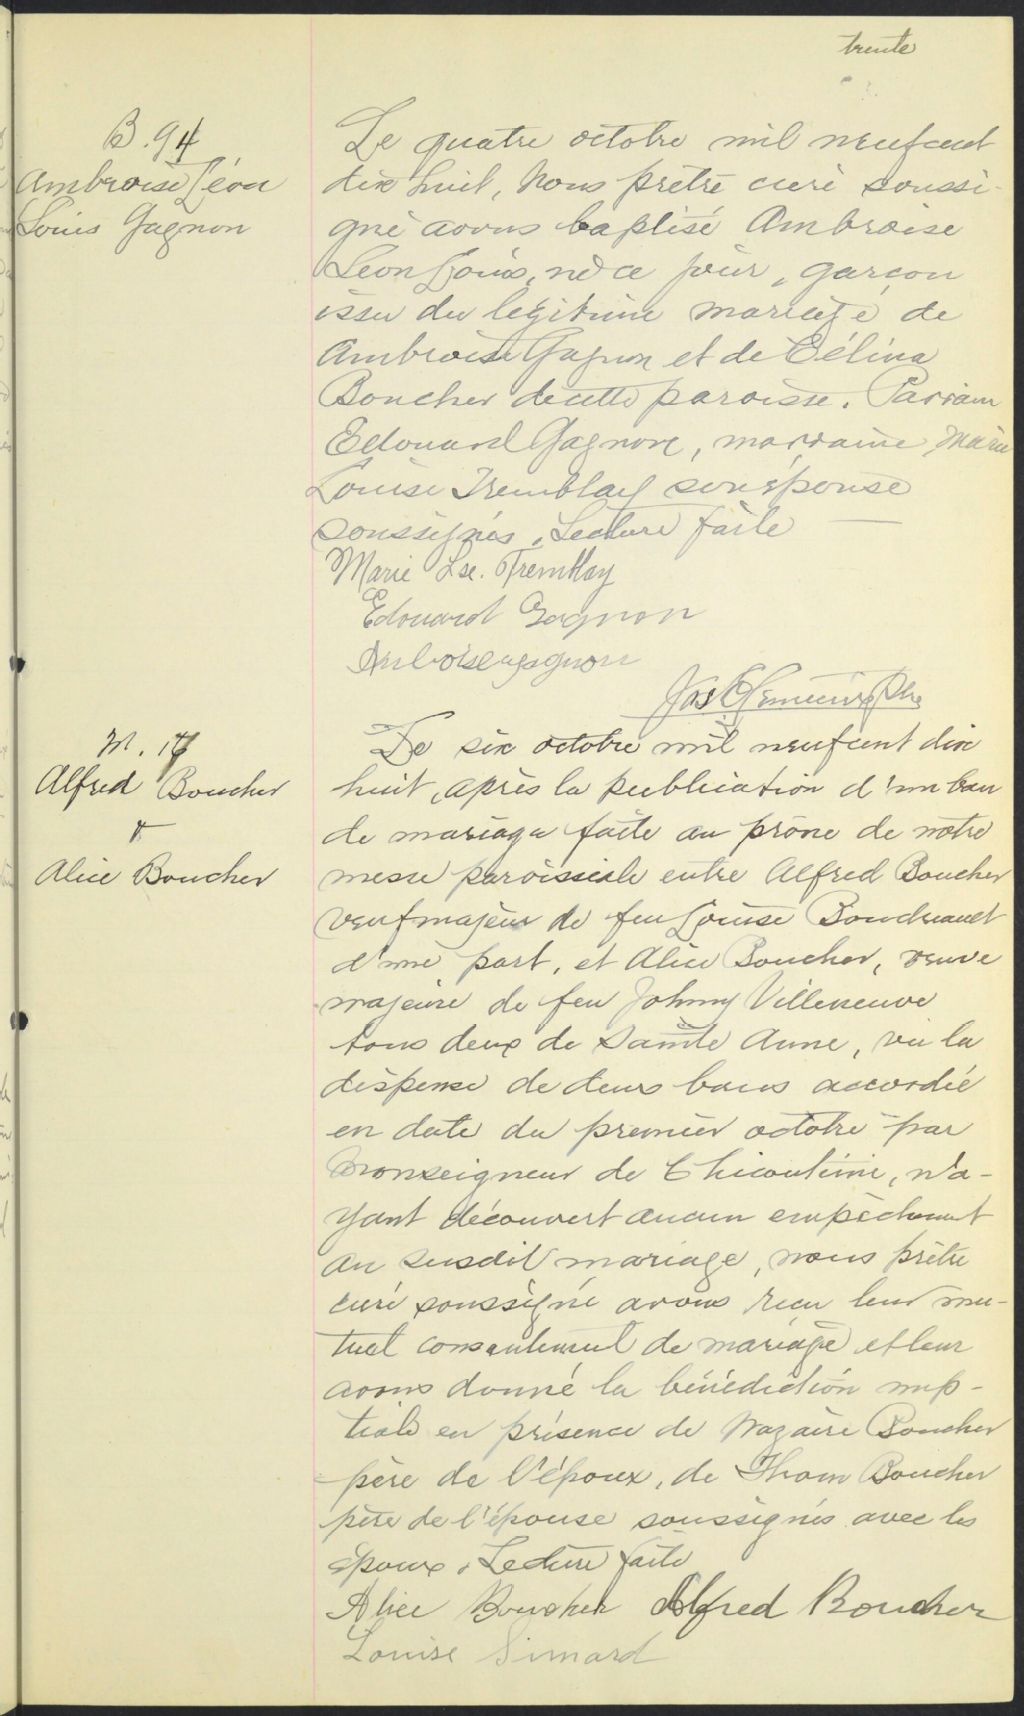 trente
B. 94
Ambroise Léon
Louis Gagnon
Le quatre octobre mil neufcent
dix huit, Nous prêtre curé soussi-
gné avons baptisé Ambroise
Léon Louis, né ce jour, garçon
issu du légitime mariage de
Ambroise Gagnon et de Célina
Boucher decette paroisse. Parrain
Edouard Gagnon, marraine Marie
Louise Tremblay son épouse
soussignés. Lecture faite
Marie Lse. Tremblay
Edouard Gagnon
Amboise gagnon
Jos Ptre
M. 17
Alfred Boucher
&
Alice Boucher
Le six octobre mil neufcent dix
huit, après la publication d'un ban
de mariage faite au prône de notre
messe paroissiale entre Alfred Boucher
veuf majeur de feu Louise Boudreault
d'une part, et Alice Boucher, veuve
majeure de feu Johnny Villeneuve
tous deux de Sainte Anne, vu la
dispense de deux bans accordée
en date du premier octobre par
Monseigneur de Chicoutimi, n'a-
yant découvert aucun empêchement
au susdit mariage, nous prêtre
curé soussigné avons reçu leur mu-
tuel consentement de mariage et leur
avons donné la bénédiction nup-
tiale en présence de Nazaire Boucher
père de l'époux, de Thom Boucher
père de l'épouse soussignés avec les
époux. Lecture faite
Alice Boucher Alfred Boucher
Louise Simard